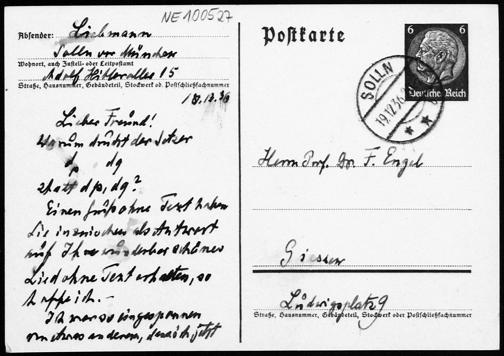 NE100527
Absender: Liebmann
Solln vor München
Wohnort, auch Zustell- oder Leitpostamt
Adolf Hitlerallee 15
Straße, Hausnummer, Gebäudeteil, Stockwerk od. Postschließfachnummer
18.12.36
Lieber Freund!
Warum druckt der Setzer
dp dq
statt dp, dq?
Einen Gruß ohne Text haben
Sie inzwischen als Antwort
auf Ihr wunderbar schönes
Lied ohne Text erhalten, so
hoffe ich. —
Ich war so eingesponnen
in etwas anderem, dass ich jetzt
Postkarte
6 6
Deutsches Reich
SOLLN
19.12.36
Herrn Prof. Dr. F. Engel
Giessen
Ludwigsplatz 9
Straße, Hausnummer, Gebäudeteil, Stockwerk od. Postschließfachnummer